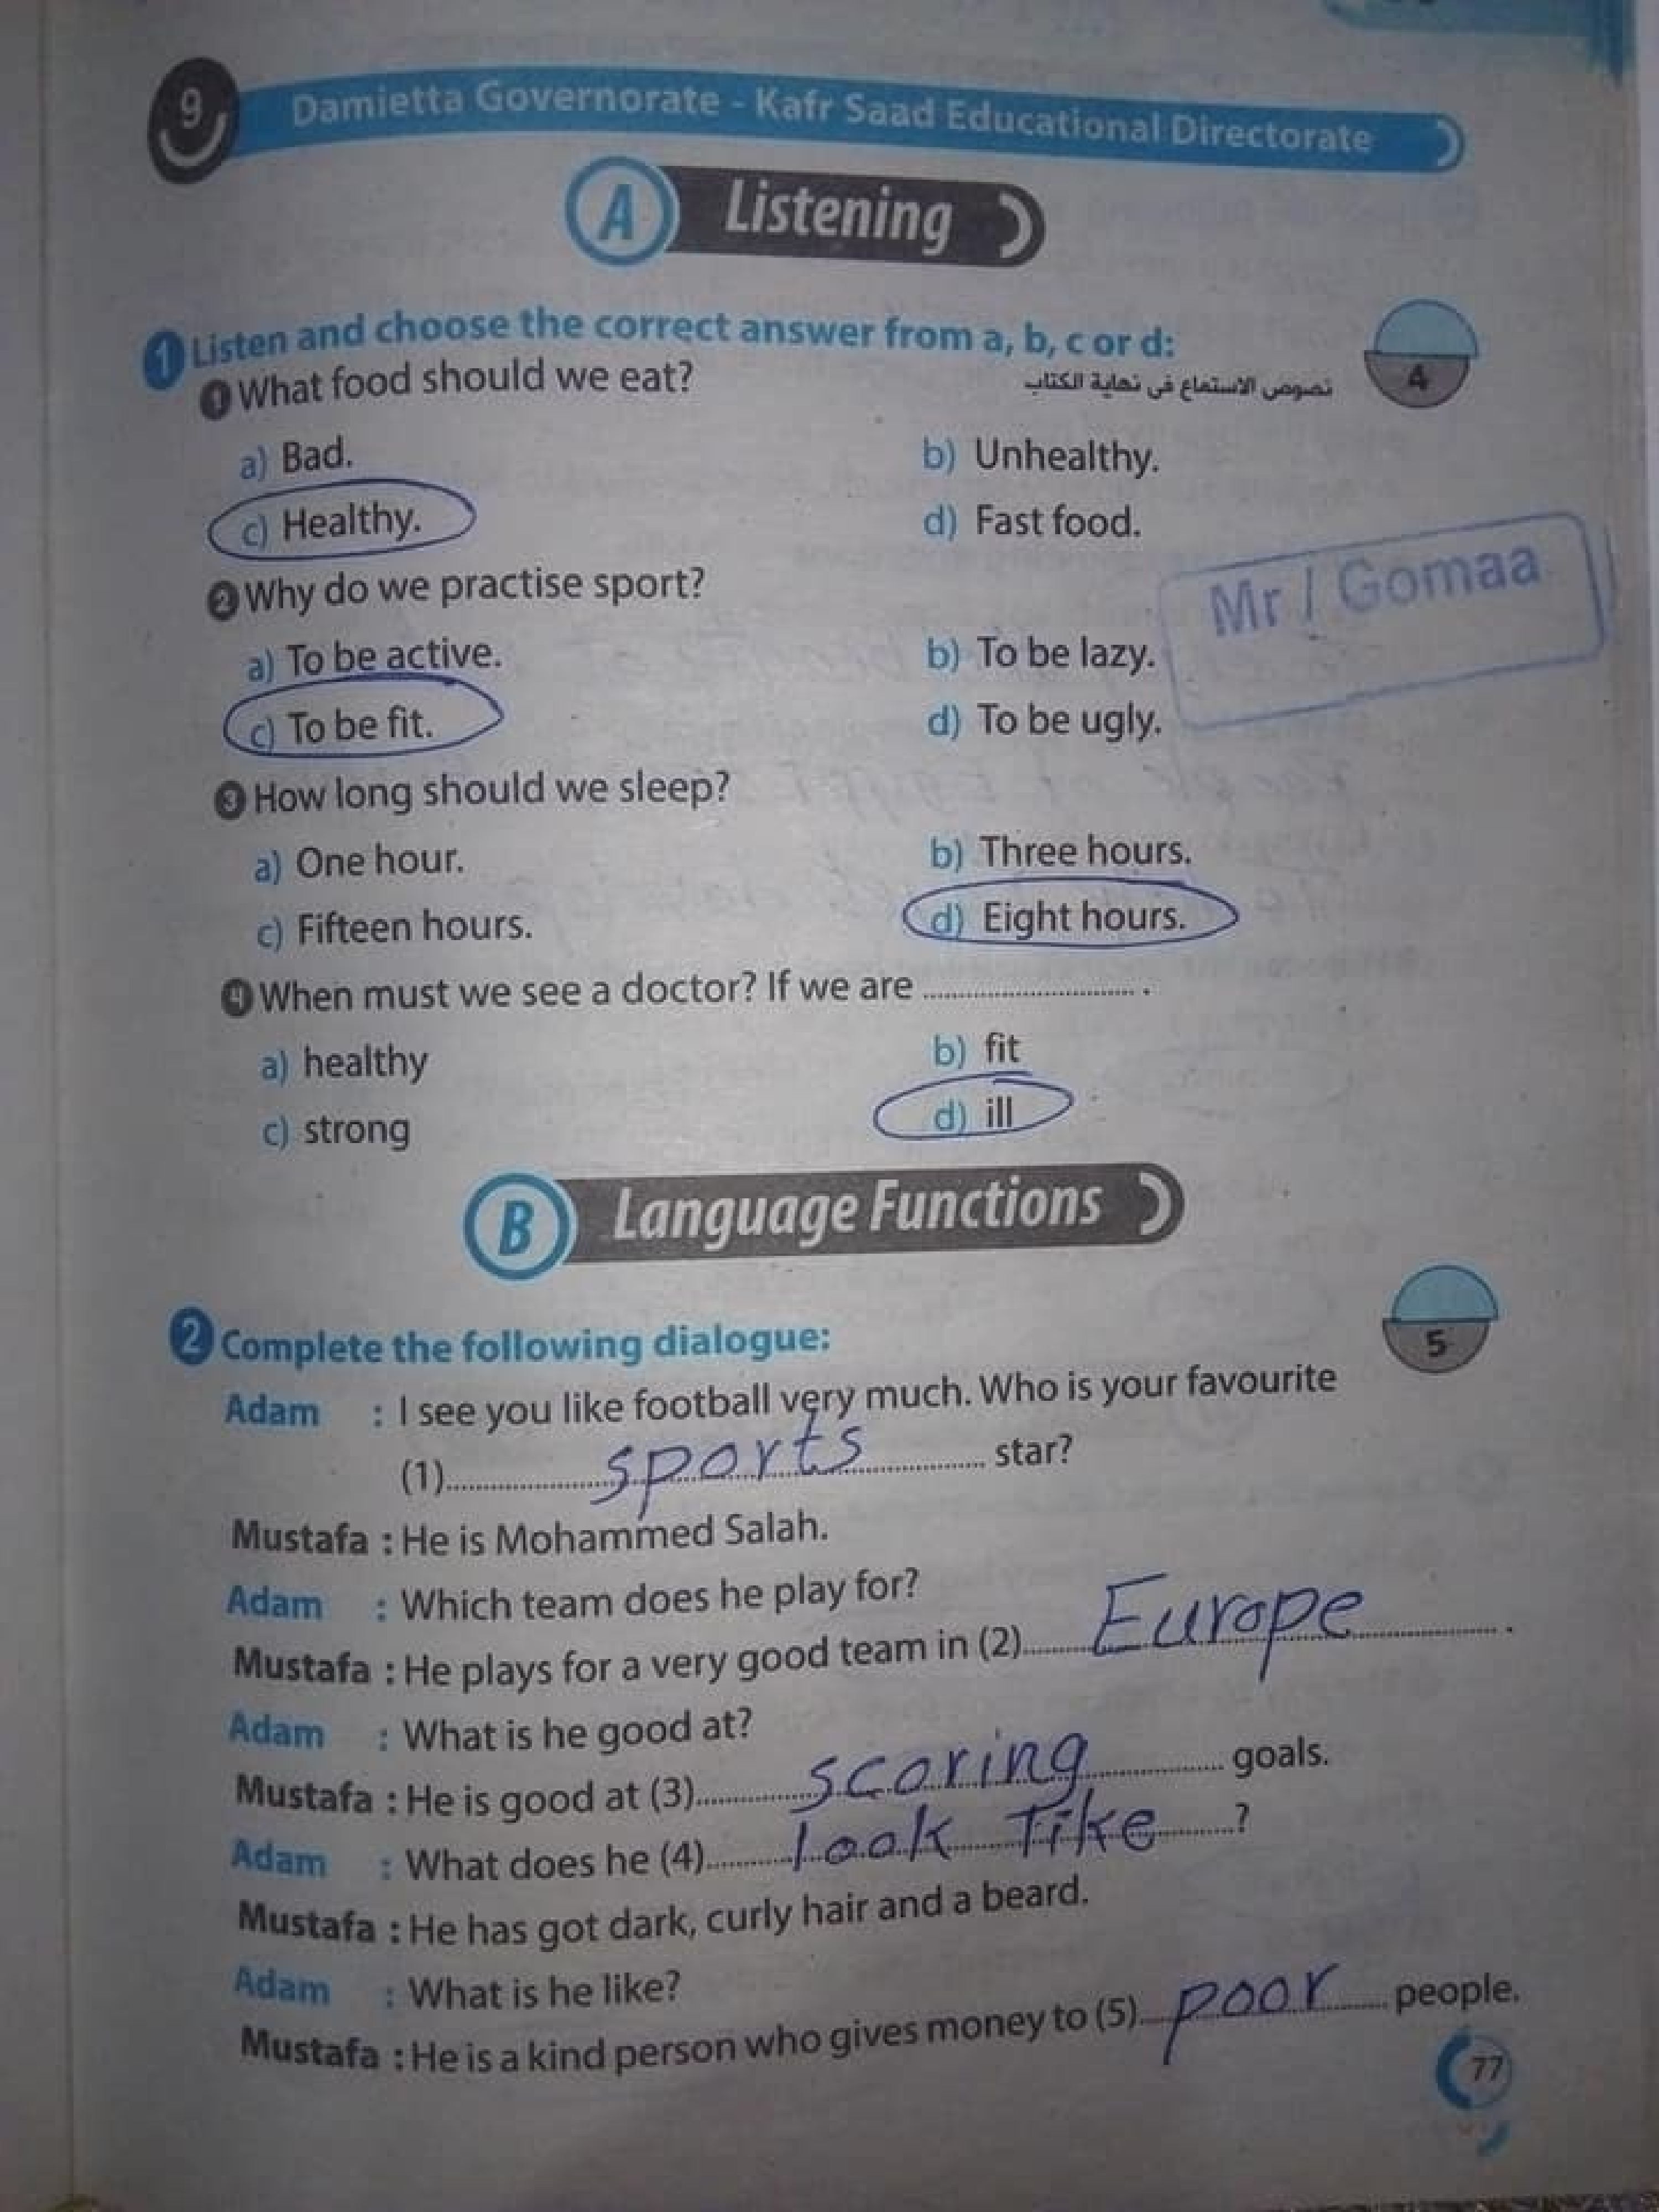 9 Damietta Governorate - Kafr Saad Educational Directorate
A Listening
1 Listen and choose the correct answer from a, b, c or d:
نصوص الاستماع فى نهاية الكتاب
4
1 What food should we eat?
a) Bad. b) Unhealthy.
c) Healthy. d) Fast food.
Mr / Gomaa
2 Why do we practise sport?
a) To be active. b) To be lazy.
c) To be fit. d) To be ugly.
3 How long should we sleep?
a) One hour. b) Three hours.
c) Fifteen hours. d) Eight hours.
4 When must we see a doctor? If we are .............................. .
a) healthy b) fit
c) strong d) ill
B Language Functions
2 Complete the following dialogue:
5
Adam : I see you like football very much. Who is your favourite
(1)......sports...... star?
Mustafa : He is Mohammed Salah.
Adam : Which team does he play for?
Mustafa : He plays for a very good team in (2)......Europe...... .
Adam : What is he good at?
Mustafa : He is good at (3)......scoring...... goals.
Adam : What does he (4)......look like......?
Mustafa : He has got dark, curly hair and a beard.
Adam : What is he like?
Mustafa : He is a kind person who gives money to (5)......poor...... people.
77